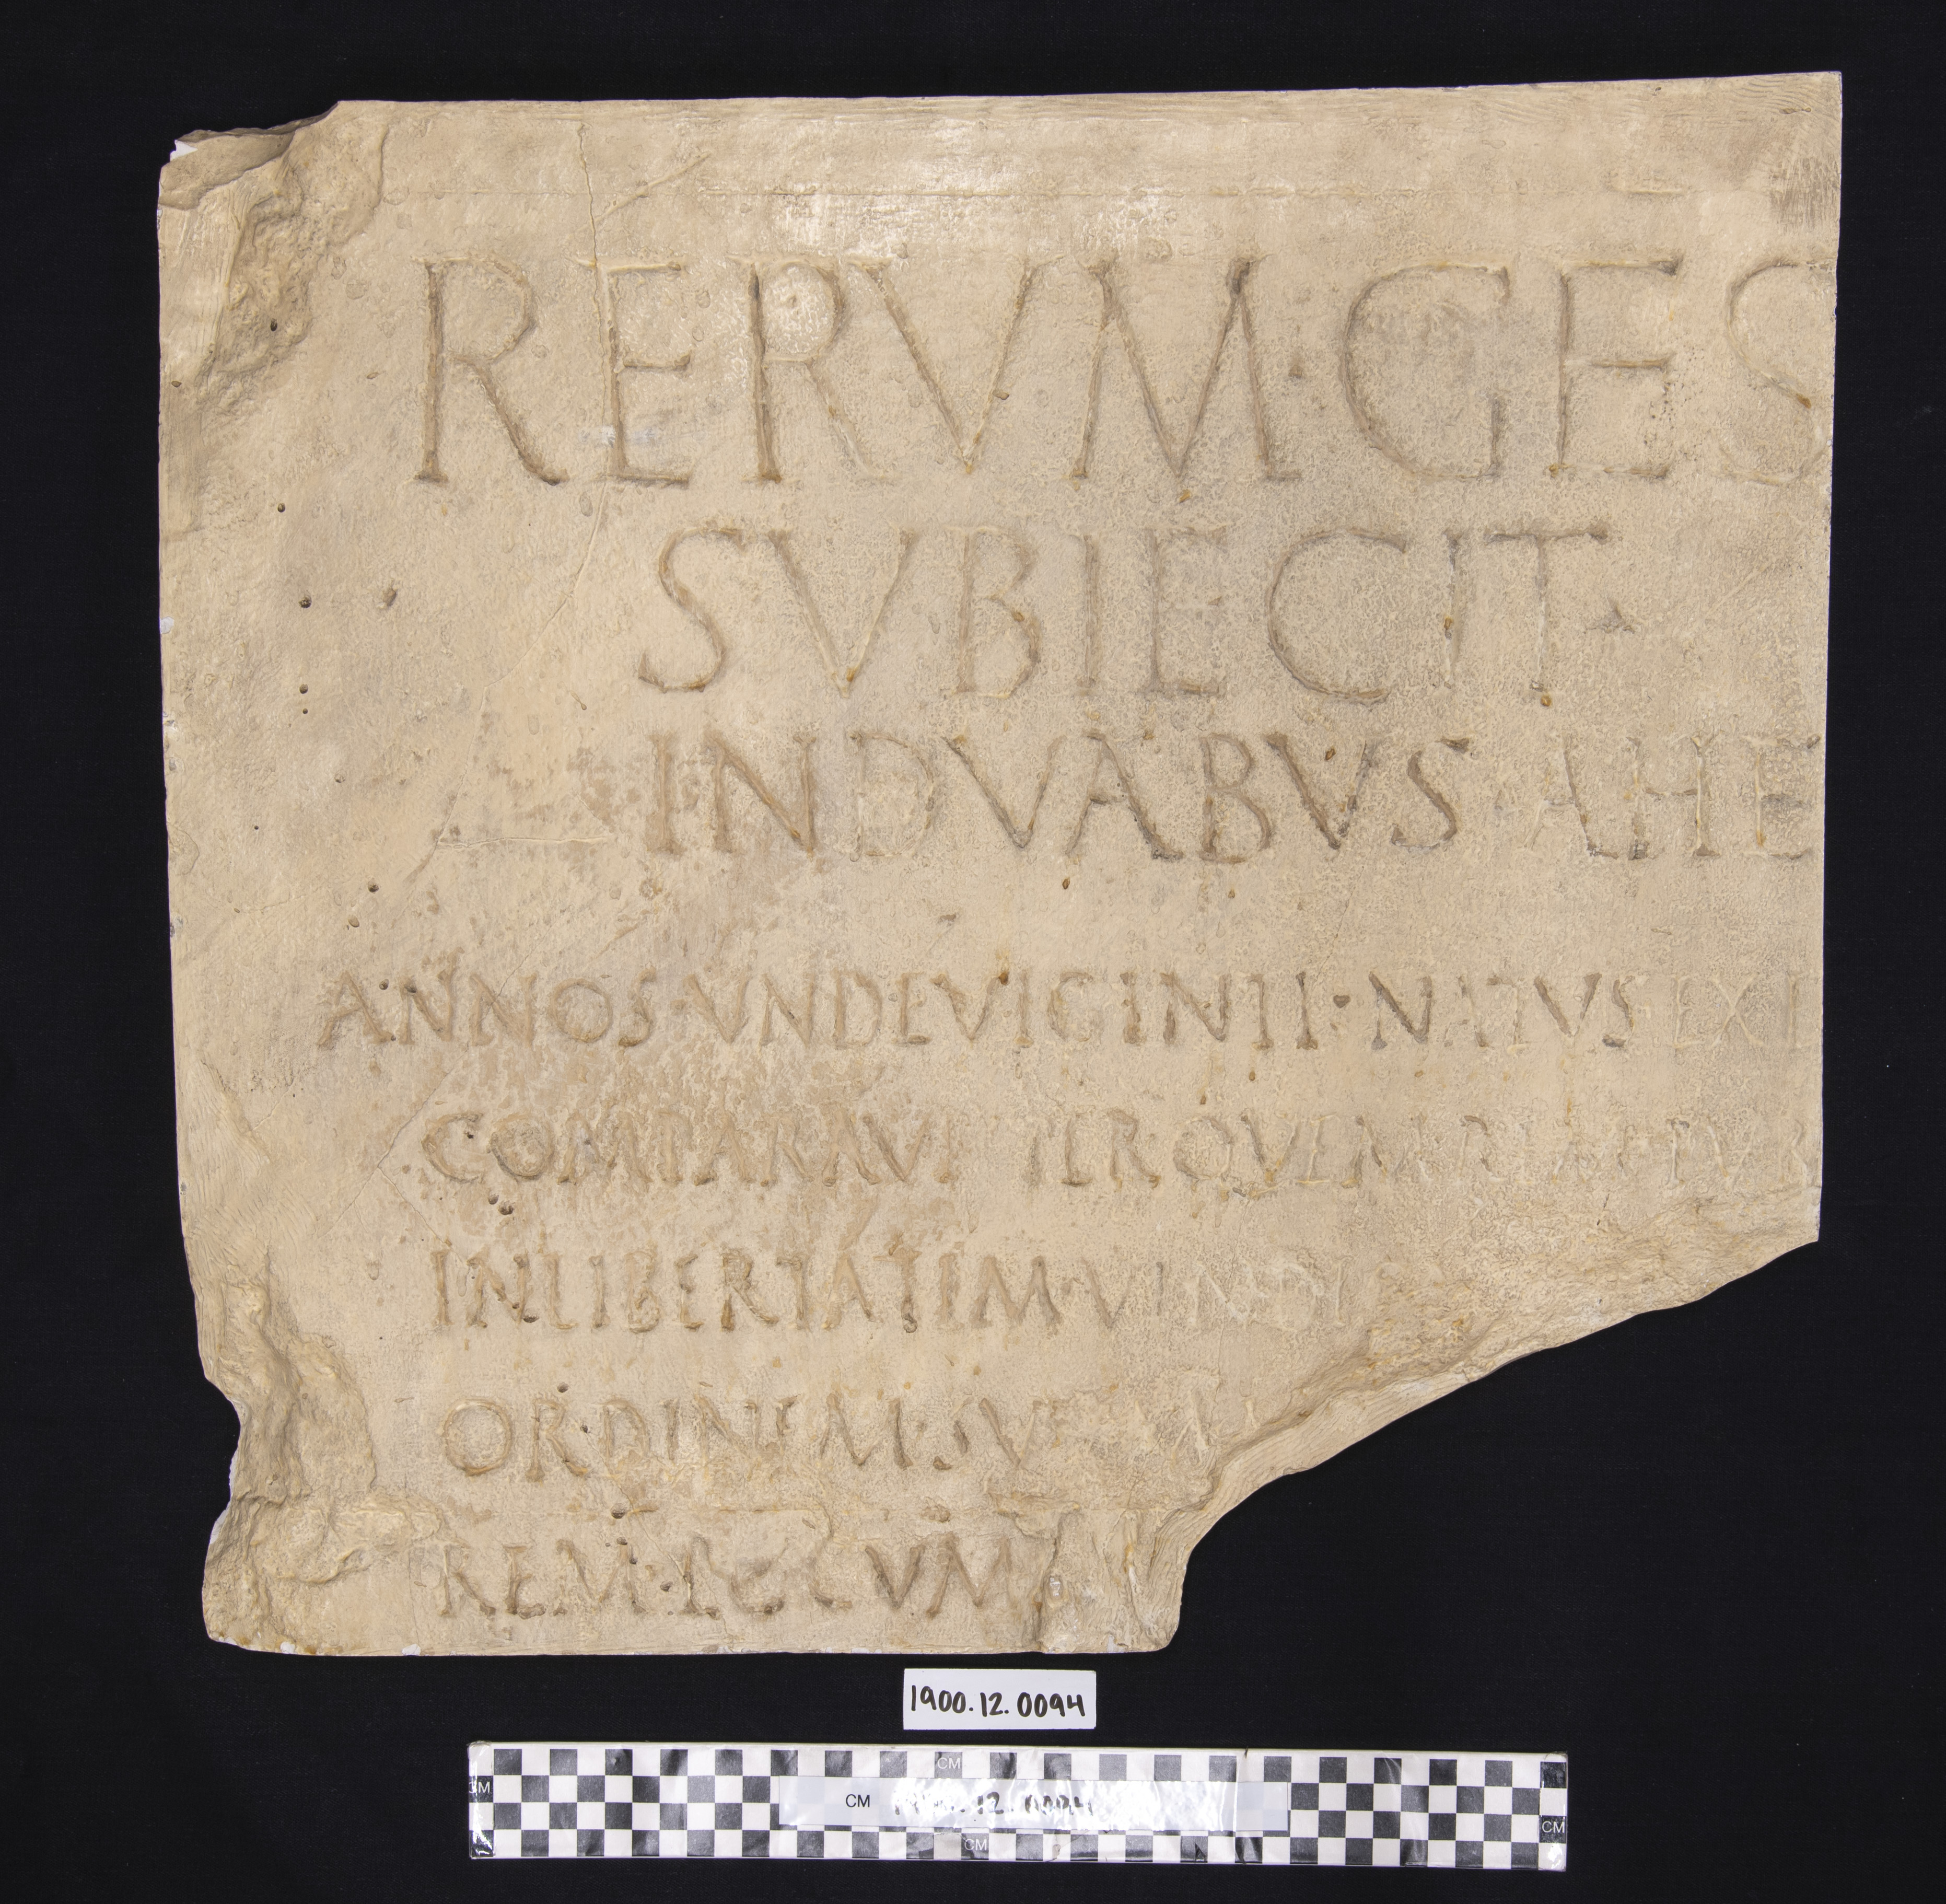 RERVM·GES
SVBIECIT·
INDVABVS AHE
ANNOS·VNDEVIGINTI·NATVS EXE
COMPARAVI PER QVEM REM PVB
IN LIBERTATEM·VINDI
ORDINEM·SVVM
REM
1900.12.0094
CM
CM
CM 1900.12.0094
CM
CM